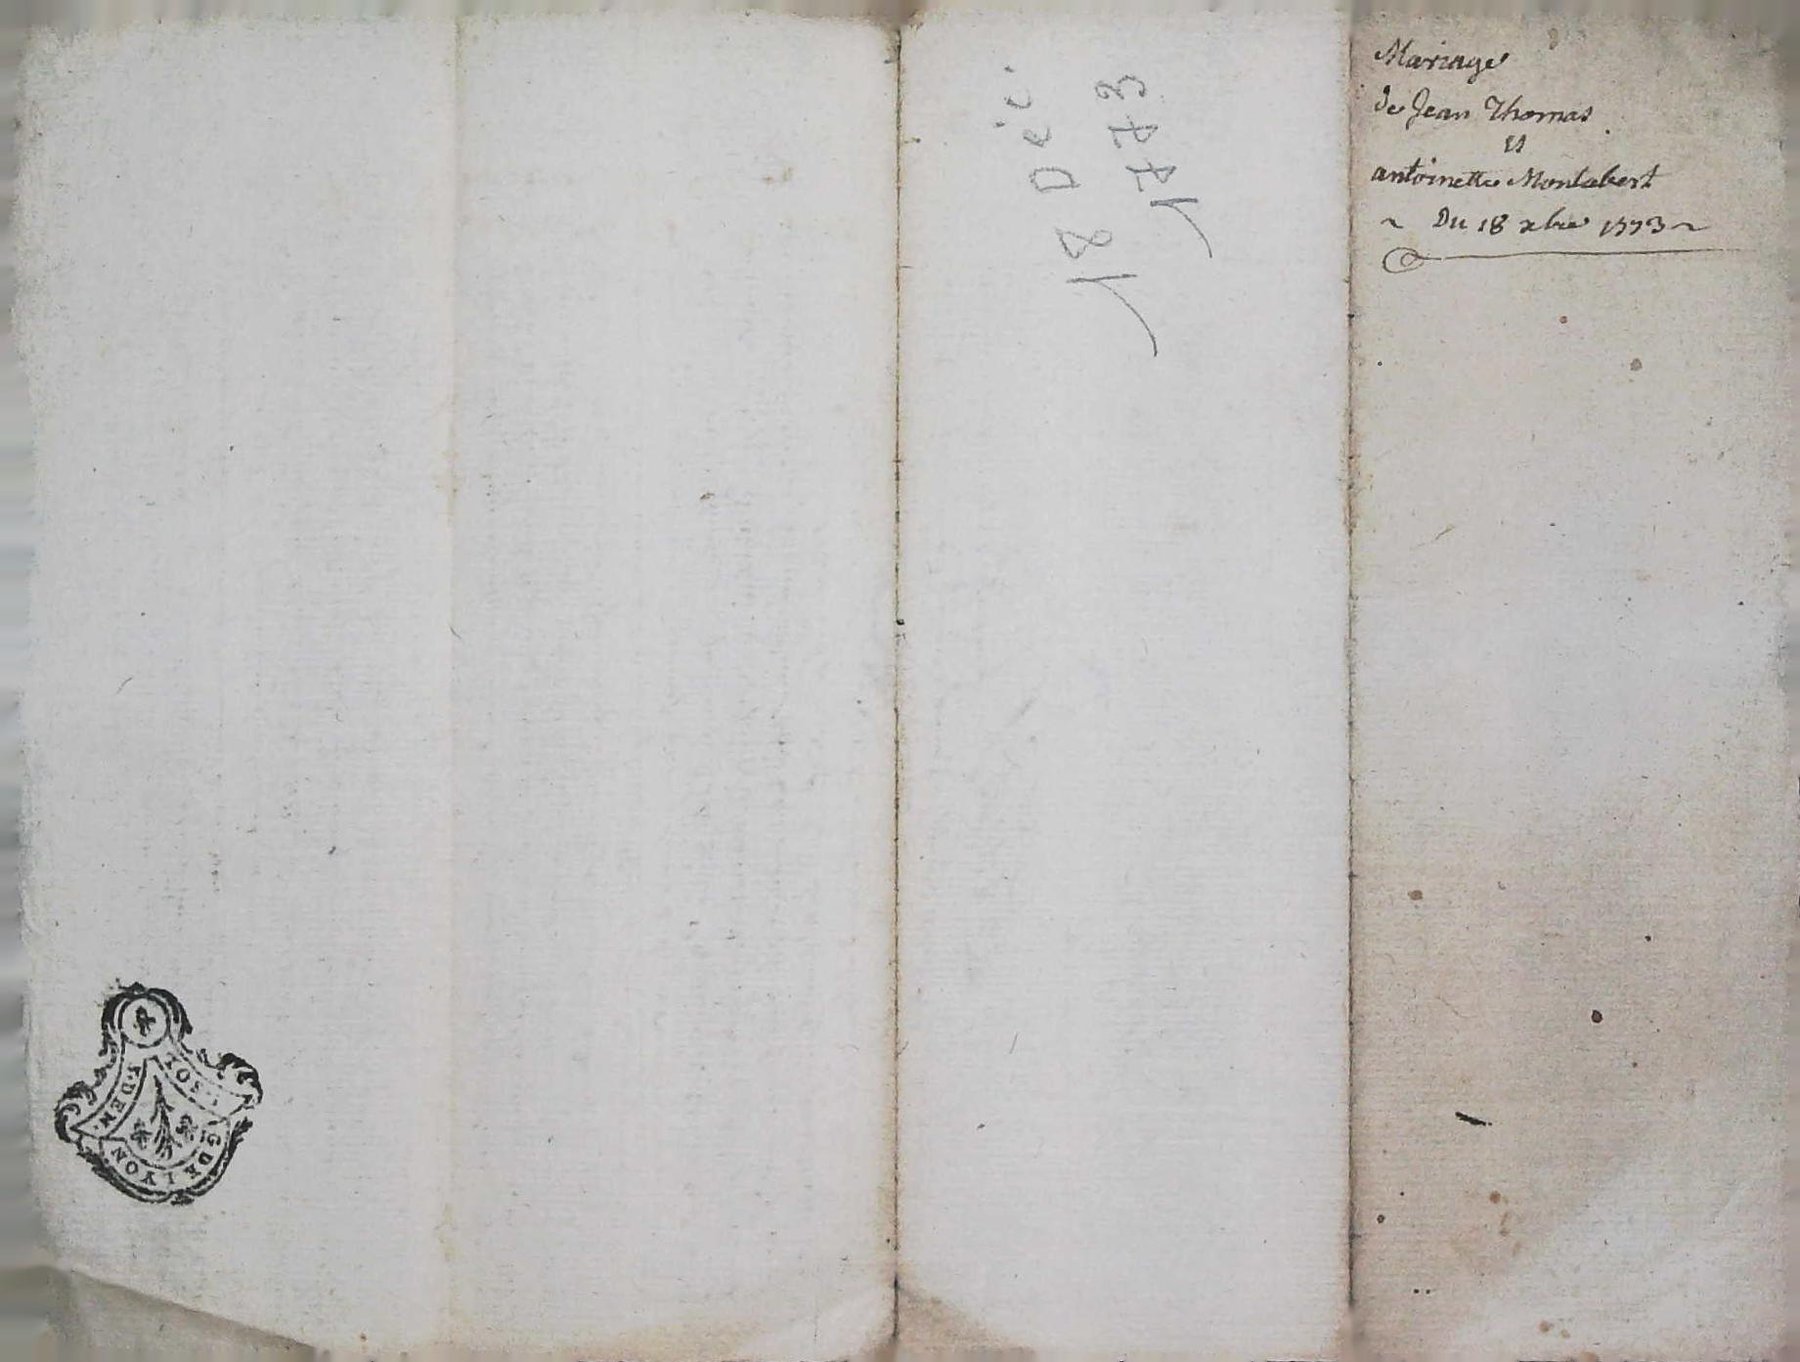 Mariage
de Jean Thomas
et
antoinette Montabert
~ Du 18 xbre 1773 ~
18 Déc.
1773
G. DE LYON